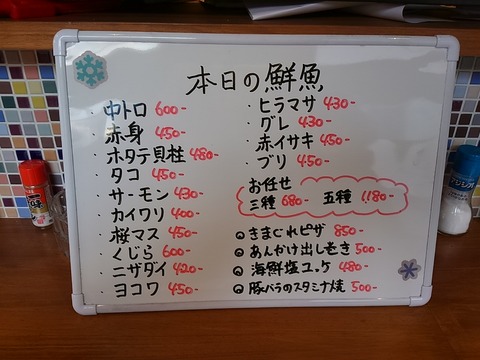 本日の鮮魚
・中トロ 600-
・赤身 450-
・ホタテ貝柱 480-
・タコ 450-
・サーモン 430-
・カイワリ 400-
・桜マス 450-
・くじら 600-
・ニザダイ 420-
・ヨコワ 450-
・ヒラマサ 430-
・グレ 430-
・赤イサキ 450-
・ブリ 450-
お任せ
三種 680- 五種 1,180-
きまぐれピザ 850-
あんかけ出し巻き 500-
海鮮塩ユッケ 480-
豚バラのスタミナ焼 500-
アジシオ